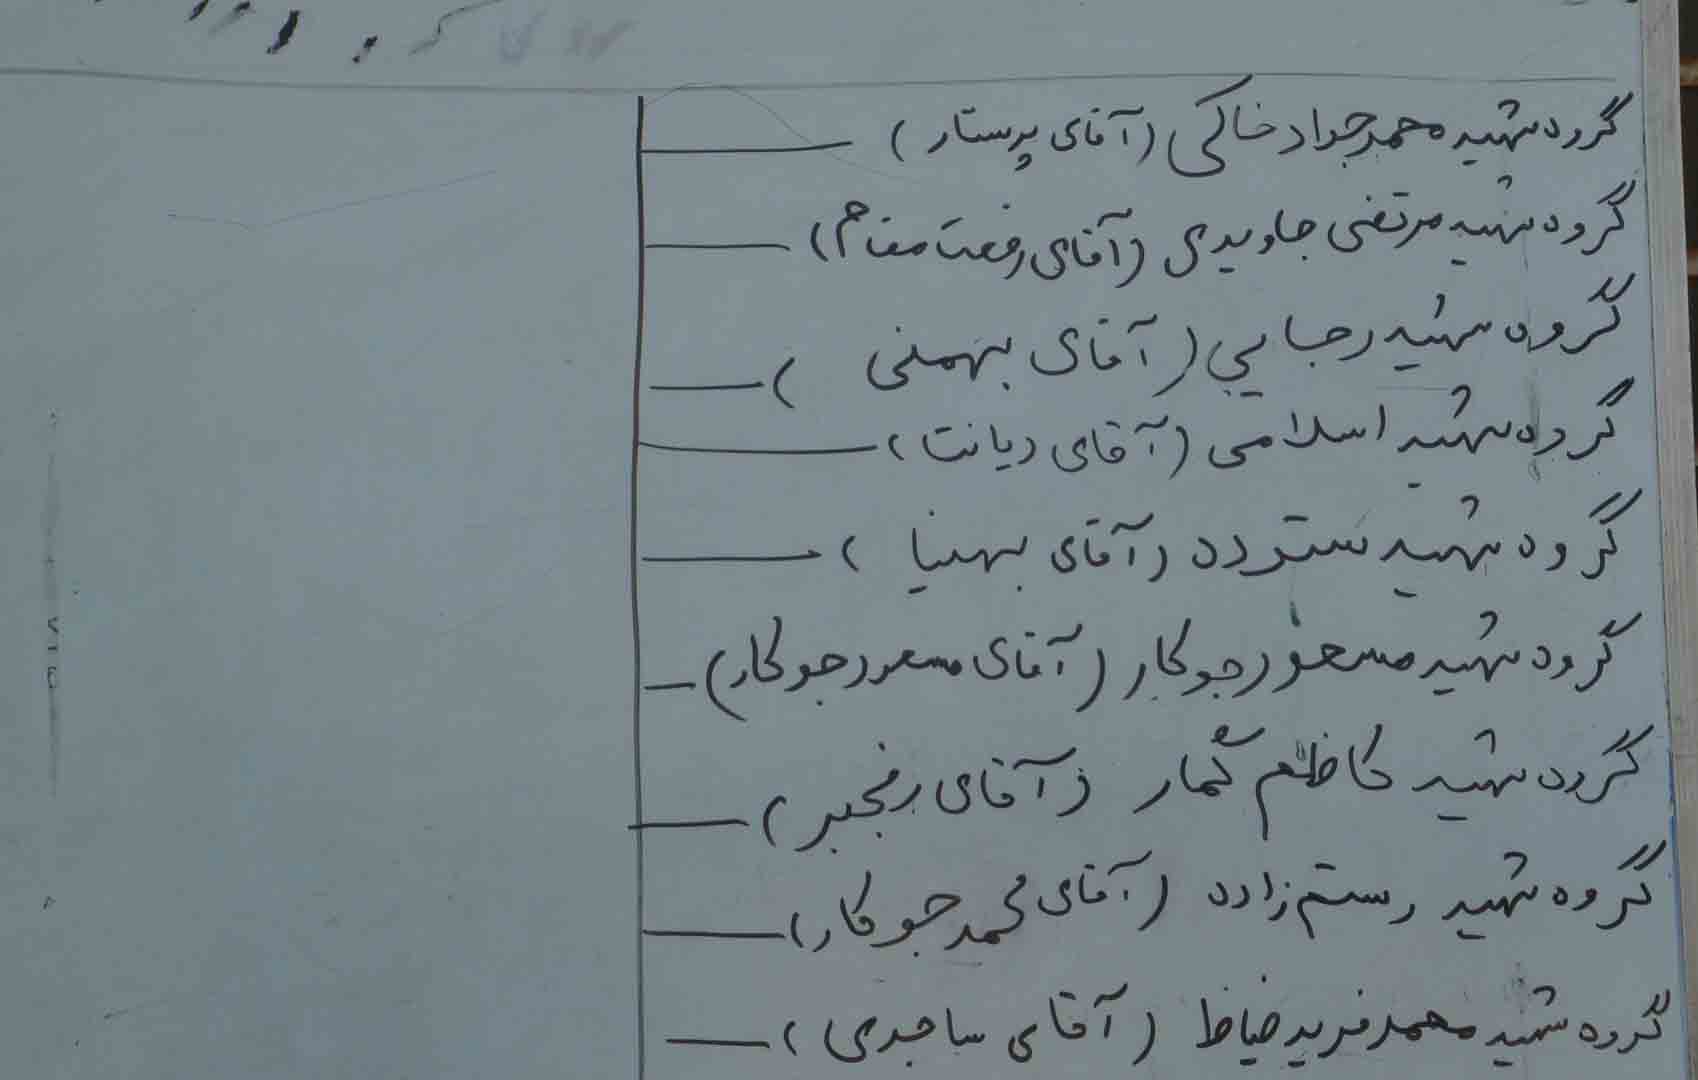 گروه شهید محمدجواد خاکی (آقای پرستار)
گروه شهید مرتضی جاویدی (آقای رفعت مقام)
گروه شهید رجایی (آقای بهمنی)
گروه شهید اسلامی (آقای دیانت)
گروه شهید ستوده (آقای بهنیا)
گروه شهید مسعود جوکار (آقای مسعود جوکار)
گروه شهید کاظم (آقای رنجبر)
گروه شهید رستم زاده (آقای محمد جوکار)
گروه شهید محمد فرید خیاط (آقای ساجدی)